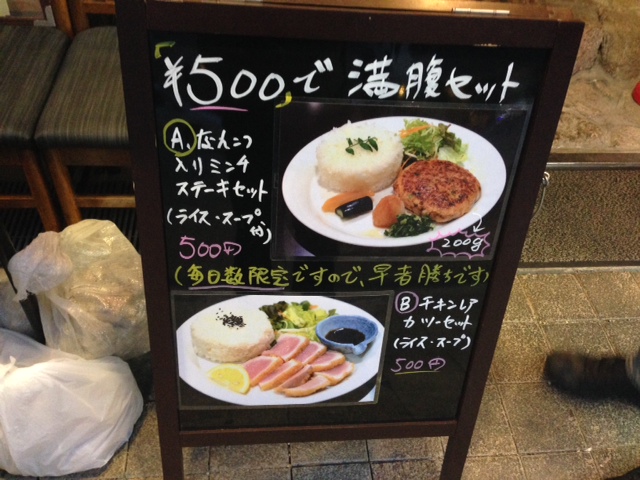 ¥500で 満腹セット
A. なんこつ
入りミンチ
ステーキセット
(ライス・スープ付)
500円
200g
(毎日数限定ですので、早者勝ちです)
B チキンレア
カツーセット
(ライス・スープ)
500円